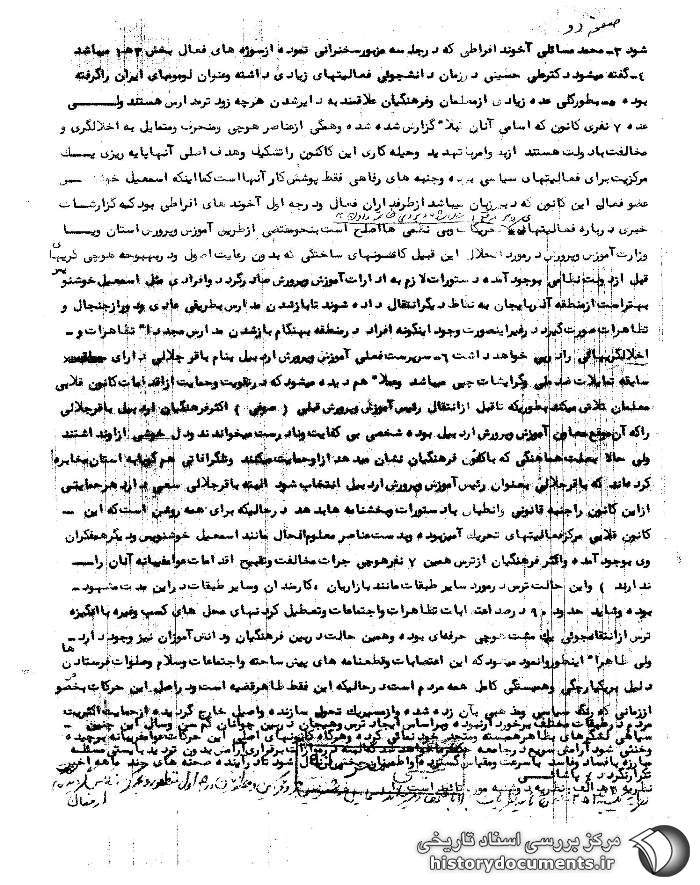 صفحه دو
شود ۳ـ محمد مسائلی آخوند افراطی که در جلسه مزبور سخنرانی نموده از سوژه های فعال بخش ۳هـ۱ میباشد
۴ـ گفته میشود دکتر علی حسینی در زمان دانشجوئی فعالیتهای زیادی داشته وعنوان لومومبای ایران را گرفته
بوده ۵ـ بطور کلی عده زیادی از معلمان وفرهنگیان علاقمند به دایر شدن هرچه زود تر مدارس هستند ولی
عده ۷ نفری کانون که اسامی آنان قبلا" گزارش شده شده وهمگی از عناصر هوچی ومنحرف ومتمایل به اخلالگری و
مخالفت باد ولت هستند از بد وامر با تهدید وحیله کاری این کانون را تشکیل وهدف اصلی آنها پایه ریزی یک
مرکزیت برای فعالیتهای سیاسی بوده وجنبه های رفاهی فقط پوشش کار آنها است کما اینکه اسمعیل
عضو فعال این کانون که دبیر زبان میباشد از طرفداران فعال ودرجه اول آخوند های افراطی بود که گزارشات
خبری درباره فعالیتهای تحریکات وبی نظمی ها اصلح است بنحو مقتضی از طریق آموزش وپرورش استان ویا
وزارت آموزش وپرورش در مورد انحلال این قبیل کانونهای ساختگی که بدون رعایت اصول ود ربحبوحه هوچی گریهای
قبل از دولت نظامی بوجود آمده دستورات لازم به ادارات آموزش وپرورش صادر گردد وافرادی مثل اسمعیل خوشنویس
بهتر است از منطقه آذربایجان به نقاط دیگر انتقال داده شوند تا باز شدن مدارس بطریقی عادی ودور از جنجال و
تظاهرات صورت گیرد در غیر اینصورت وجود اینگونه افراد در منطقه بهنگام باز شدن مدارس مجددا" تظاهرات و ـ
اخلالگریهائی را در پی خواهد داشت ۶ـ سرپرست فعلی آموزش وپرورش اردبیل بنام باقر جلالی دارای
سابقه تمایلات ضد ملی وگرایشات چپی میباشد وعملا" هم دیده میشود که در تقویت وحمایت از اقدامات کانون قلابی
معلمان تلاش میکند بطوریکه تا قبل از انتقال رئیس آموزش وپرورش قبلی ( صوفی ) اکثر فرهنگیان اردبیل باقر جلالی
را که آن موقع معاون آموزش وپرورش اردبیل بوده شخصی بی کفایت ونادرست میخواندند ودل خوشی از او نداشتند
ولی حالا بعلت هماهنگی که با کانون فرهنگیان نشان میدهد از او حمایت میکنند وتلگرافاتی هم که به استان مخابره
کرده اند که باقر جلالی بعنوان رئیس آموزش وپرورش اردبیل انتخاب شود البته باقر جلالی سعی دارد هر حمایتی
از این کانون را جنبه قانونی وانطباق باد ستورات وبخشنامه ها بدهد در حالیکه برای همه روشن است که این ـ
کانون قلابی مرکز فعالیتهای تحریک آمیز بوده وبد ست عناصر معلوم الحال مانند اسمعیل خوشنویس ودیگر همفکران
وی بوجود آمده واکثر فرهنگیان از ترس همین ۷ نفر هوچی جرات مخالفت وتقبیح اقدامات عوامفریبانه آنان را ـ
ندارند ) واین حالت ترس در مورد سایر طبقات مانند بازاریان ، کارمندان وسایر طبقات در این مدت مشهود ـ
بوده وشاید حدود ۹۰ درصد اعتصابات تظاهرات واجتماعات وتعطیل کردنهای محل های کسب وغیره با انگیزه
ترس از انتقامجوئی یک مشت هوچی حرفه ای بوده وهمین حالت در بین فرهنگیان ودانش آموزان نیز وجود دارد ـ
ولی ظاهرا" اینطور وانمود میشود که این اعتصابات وقطعنامه های پیش ساخته واجتماعات وسلام وصلوات فرستادنها
دلیل بر یکپارچگی وهمبستگی کامل همه مردم است در حالیکه این فقط ظاهر قضیه است ود راصل این حرکات بخصوص
از زمانی که رنگ سیاسی ومذهبی بآن زده شده واز مسیر یک تحول سازنده واصیل خارج گردیده از حمایت اکثریت
مردم در طبقات مختلف برخوردار نبوده وبراساس ایجاد ترس وهیجان در بین جوانان کم سن وسال این چنین ـ
سیاهی لشگرهای بظاهر همبسته ومتحد بخود تلقی کرده وهرگاه کانونهای اصلی این حرکات عوامفریبانه برچیده
وخنثی شود آرامش سریع در جامعه حکمفرما خواهد شد برقراری آرامش بدون تردید بایستی مسئله
مبارزه با فساد وفاسد با سرعت ومقیاس گسترده واطمینان بخشی دنبال شود تا در آینده صحنه های چند ماهه اخیر
تکرار نگردد . پاشائی
نظریه ۳هـ الف : نظریه دوشنبه مورد تائید است
مرکز بررسی اسناد تاریخی
historydocuments.ir